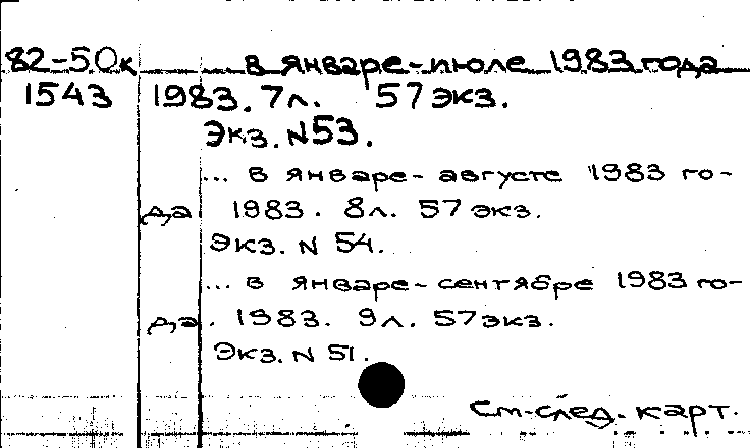 82-50к в январе-июле 1983 года
1543 1983. 7л. 57 экз.
Экз. N 53.
... в январе- августе 1983 го-
да 1983. 8л. 57 экз.
Экз. N 54.
... в январе-сентябре 1983 го-
да. 1983. 9л. 57 экз.
Экз. N 51.
См.след. карт.